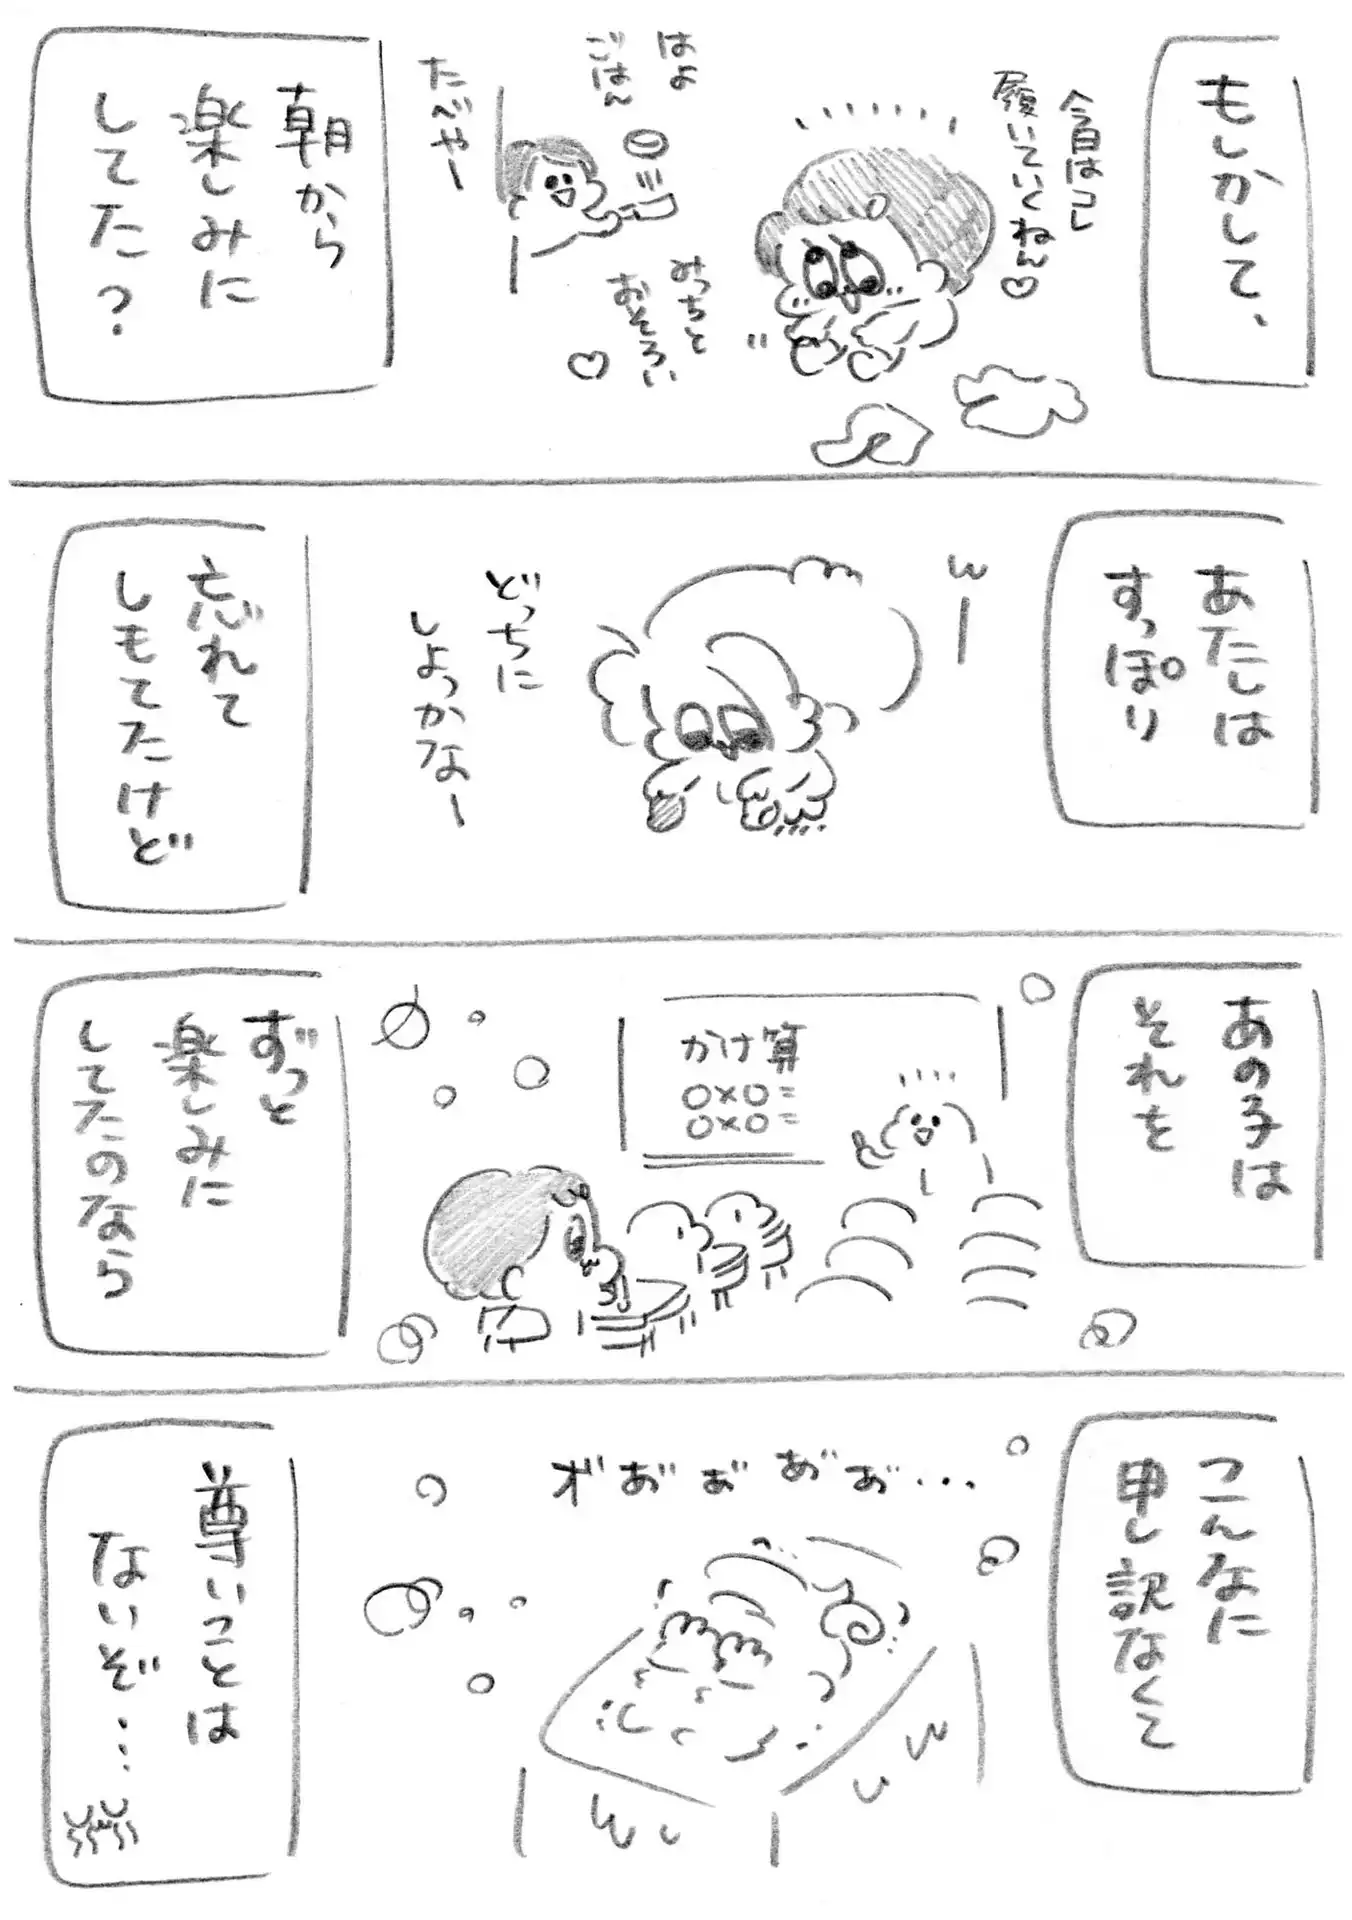 もしかして、
今日はコレ
履いていくねん♡
はよ
ごはん
たべやー
みっちと
おそろい
♡
朝から
楽しみに
してた?
あたしは
すっぽり
どっちに
しよっかなー
忘れて
しもてたけど
あの子は
それを
かけ算
0×0=
0×0=
ずっと
楽しみに
してたのなら
こんなに
申し訳なくて
オ゛お゛お゛お゛お゛…
尊いことは
ないぞ…